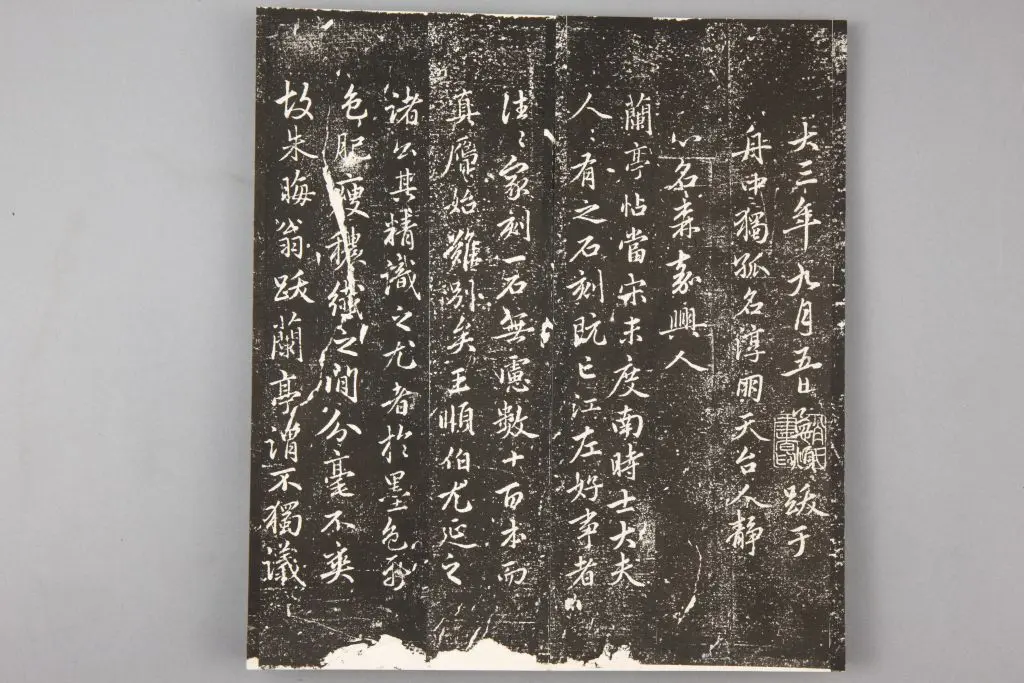 大三年九月五日孟頫跋于
舟中獨孤名淳朋天台人靜
心名森嘉興人
蘭亭帖當宋未度南時士大夫
人〻有之石刻既亡江左好事者
往〻家刻一石無慮數十百本而
真贗始難別矣王順伯尤延之
諸公其精識之尤者於墨色紙
色肥瘦穠纖之間分毫不爽
故朱晦翁跋蘭亭謂不獨議